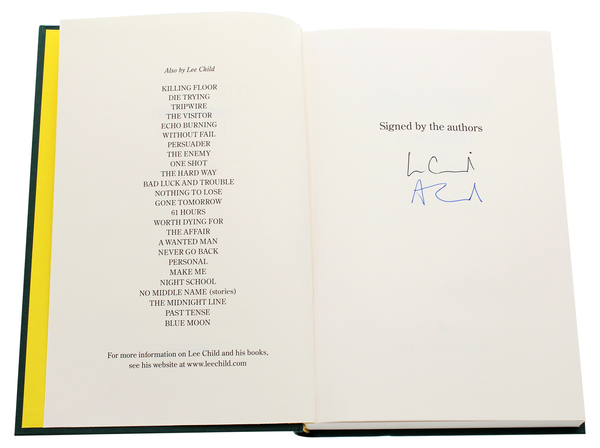 Also by Lee Child
KILLING FLOOR
DIE TRYING
TRIPWIRE
THE VISITOR
ECHO BURNING
WITHOUT FAIL
PERSUADER
THE ENEMY
ONE SHOT
THE HARD WAY
BAD LUCK AND TROUBLE
NOTHING TO LOSE
GONE TOMORROW
61 HOURS
WORTH DYING FOR
THE AFFAIR
A WANTED MAN
NEVER GO BACK
PERSONAL
MAKE ME
NIGHT SCHOOL
NO MIDDLE NAME (stories)
THE MIDNIGHT LINE
PAST TENSE
BLUE MOON
For more information on Lee Child and his books,
see his website at www.leechild.com
Signed by the authors